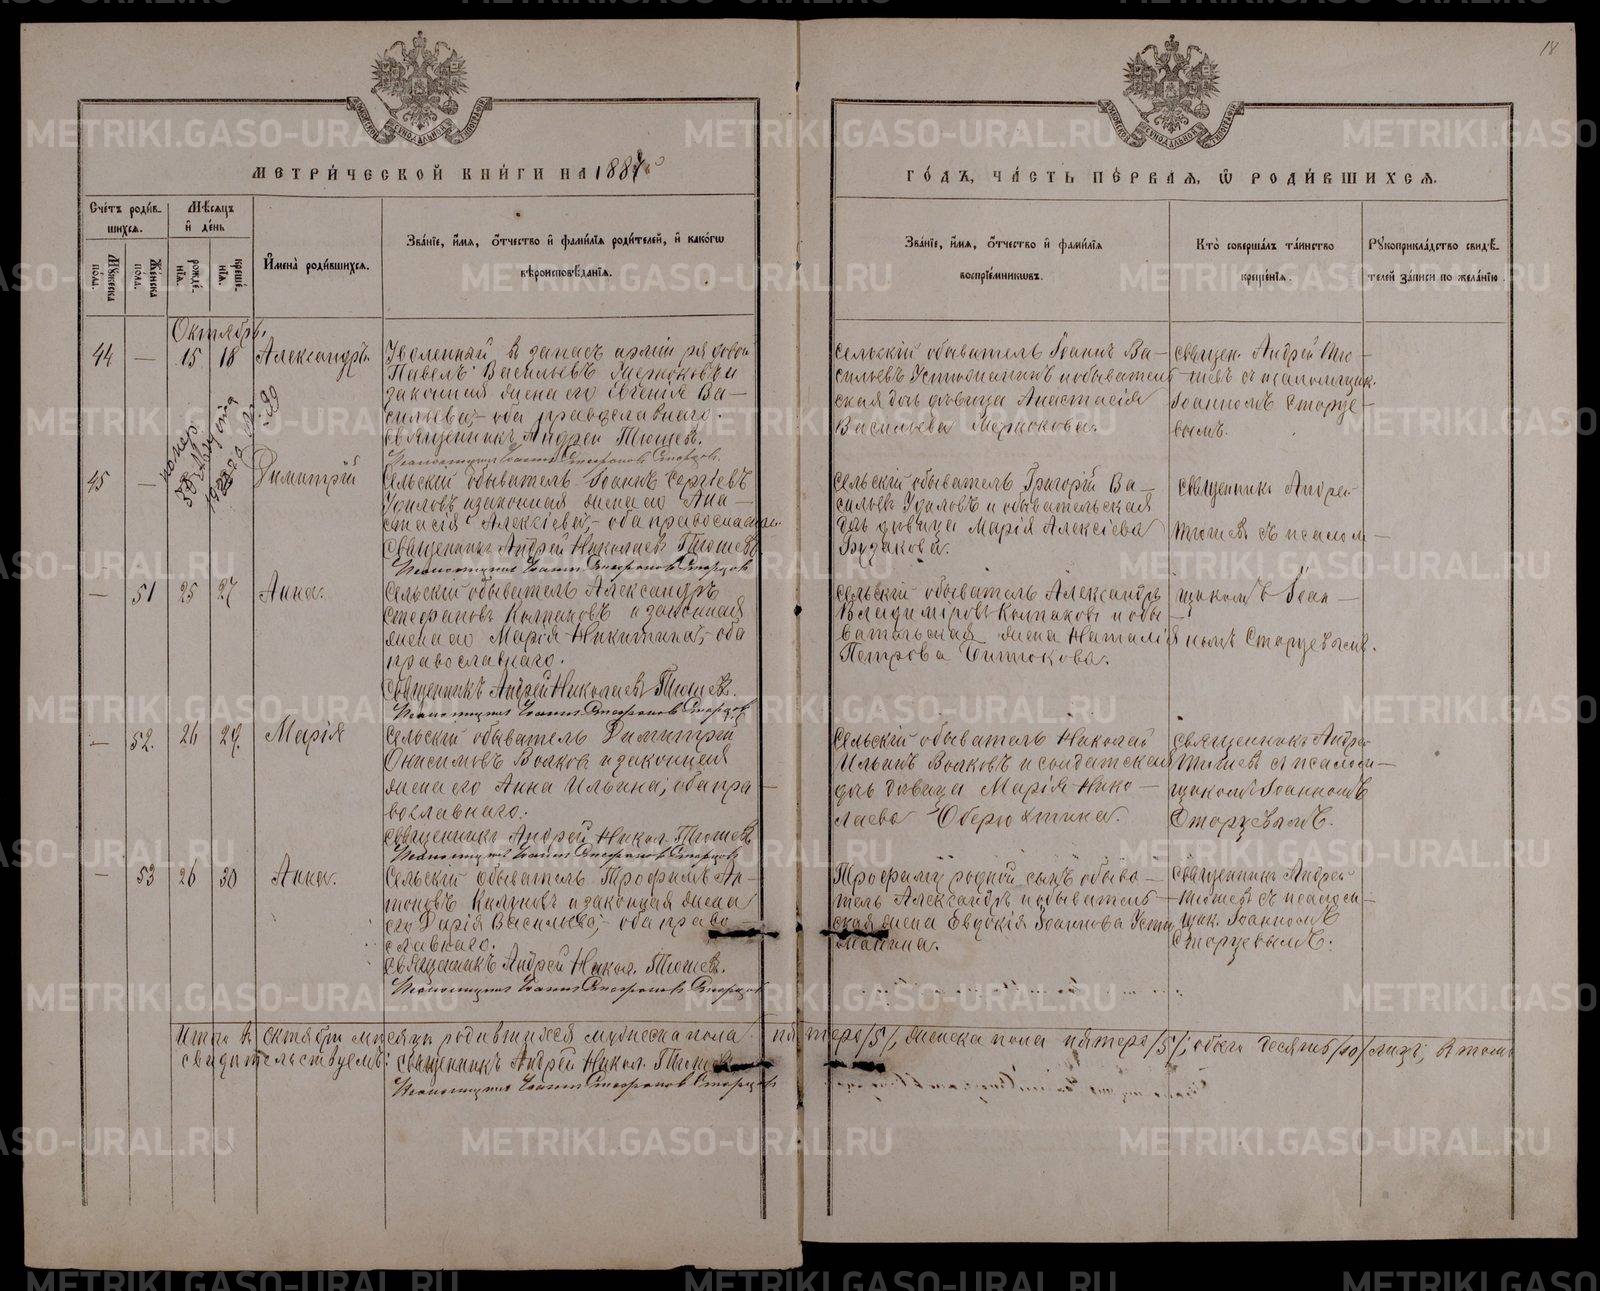 18
МЕТРИ́ЧЕСКОЙ КНИ́ГИ НА 1887
ГО́ДЪ, ЧА́СТЬ ПЕ́РВАЯ, Ѽ РОДИ́ВШИХСЯ.
Сче́тъ роди́в-
шихся.
Мѣ́сяцъ
и҆ де́нь
И҆мена̀ роди́вшихся.
Зва́нїе, и҆́мя, ѻ҆́тчество и҆ фами́лїя роди́телей, и҆ како́гѡ
вѣроисповѣ́данїя.
Мꙋ́жеска
по́ла.
Же́нска
по́ла.
рожде́-
нїя.
креще́-
нїя.
Зва́нїе, и҆́мя, ѻ҆́тчество и҆ фами́лїя
воспрїе́мниковъ.
Кто̀ соверша́лъ та́инство
креще́нїя.
Рꙋкоприкла́дство свидѣ́-
телей за́писи по жела́нїю.
Октябрь.
44 — 15 18 Александръ.
Уволенный въ запасъ арміи рядовой
Павелъ Васильевъ и
законная жена его Евгенія Ва-
сильева, оба православнаго.
Священникъ Андрей Тюшевъ.
Псаломщикъ Іоаннъ Стефановъ Старцовъ.
Сельскій обыватель Іоаннъ Ва-
сильевъ Устюжанинъ и обыватель-
ская дочь дѣвица Анастасія
Васильева
Священ. Андрей Тю-
шевъ съ псаломщик.
Іоанномъ Старце-
вымъ.
45 — Димитрій
Сельскій обыватель Іоаннъ Сергіевъ
и законная жена его Ана-
стасія Алексіева, оба православн.
Священникъ Андрей Николаевъ Тюшевъ
Псаломщикъ Іоаннъ Стефановъ Старцовъ
Сельскій обыватель Григорій Ва-
сильевъ и обывательская
дочь дѣвица Марія Алексіева
Священникъ Андрей
Тюшевъ съ псалом-
— 51 25 27 Анна.
Сельскій обыватель Александръ
Стефановъ Колпаковъ и законная
жена его Марія Никитина, оба
православнаго.
Священникъ Андрей Николаевъ Тюшевъ.
Псаломщикъ Іоаннъ Стефановъ Старцовъ
Сельскій обыватель Александръ
Владиміровъ Колпаковъ и обы-
вательская жена Наталія
Петрова
щикомъ Іоан-
номъ Старцевымъ.
— 52. 26 29. Марія
Сельскій обыватель Димитрій
Онисимовъ Волковъ и законная
жена его Анна Ильина, оба пра-
вославнаго.
Священникъ Андрей Никол. Тюшевъ
Псаломщикъ Іоаннъ Стефановъ Старцовъ
Сельскій обыватель Николай
Ильинъ Волковъ и солдатская
дочь дѣвица Марія Нико-
лаева Оберюхтина.
Священникъ Андрей
Тюшевъ съ псалом-
щикомъ Іоанномъ
Старцевымъ.
— 53 26 30 Анна.
Сельскій обыватель Трофимъ Ан-
тоновъ и законная жена
его Дарія Васильева, оба право-
славнаго.
Священникъ Андрей Никол. Тюшевъ.
Псаломщикъ Іоаннъ Стефановъ Старцовъ
Трофиму родной сынъ обыва-
тель Александръ и обыватель-
ская жена Евдокія Іоаннова Устю-
жанина.
Священникъ Андрей
Тюшевъ съ псалом-
щик. Іоанномъ
Старцевымъ.
Итого въ октябрѣ мѣсяцѣ родившихся мужеска пола пятеро /5/, женска пола пятеро /5/, обоего десять /10/ лицъ, въ томъ
свидѣтельствуемъ: Священникъ Андрей Никол. Тюшевъ
Псаломщикъ Іоаннъ Стефановъ Старцовъ
METRIKI.GASO-URAL.RU